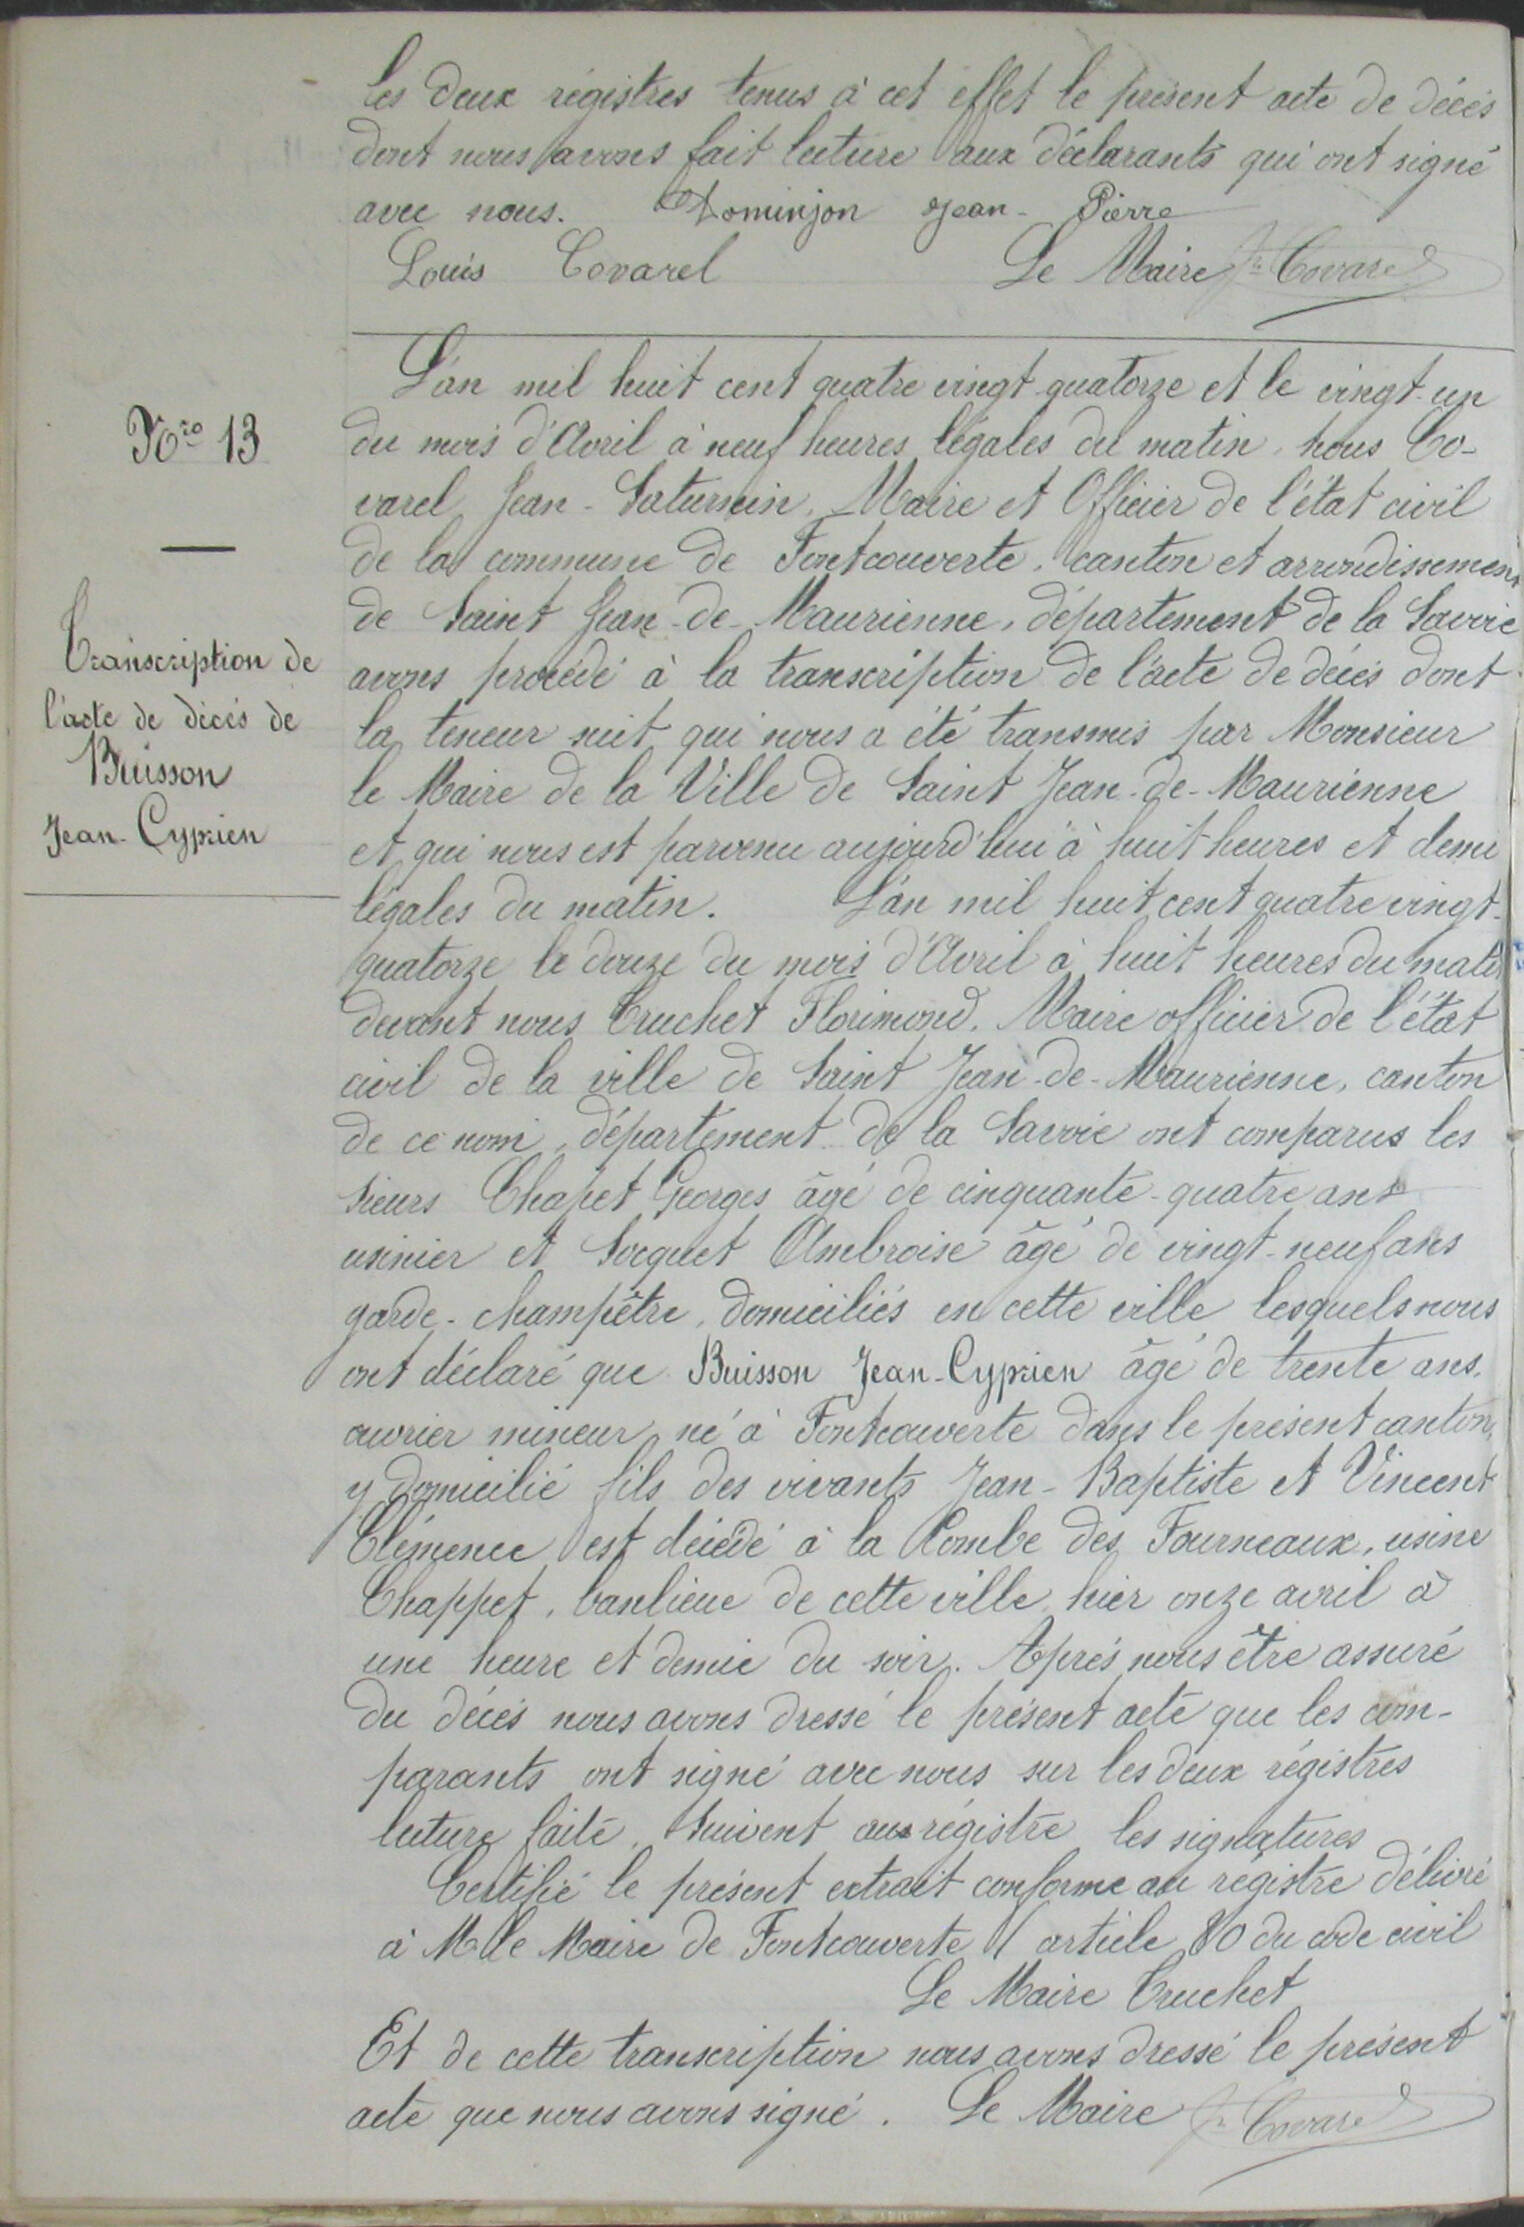 les deux régistres tenus à cet effet le présent acte de décès
dont nous avons fait lecture aux déclarants qui ont signé
avec nous. Dominjon Jean-Pierre
Louis Covarel Le Maire Jn Covarel
Nro 13
Transcription de
l'acte de décès de
Buisson
Jean-Cyprien
L'an mil huit cent quatre vingt quatorze et le vingt-un
du mois d'Avril à neuf heures légales du matin, nous Co-
varel Jean-Saturnin, Maire et Officier de l'état civil
de la commune de Fontcouverte, canton et arrondissement
de Saint Jean-de-Maurienne, département de la Savoie
avons procédé à la transcription de l'acte de décès dont
la teneur suit qui nous a été transmis par Monsieur
le Maire de la Ville de Saint Jean-de-Maurienne
et qui nous est parvenu aujourd'hui à huit heures et demi
légales du matin. L'an mil huit cent quatre vingt-
quatorze le douze du mois d'Avril à huit heures du matin
devant nous Truchet Florimond, Maire officier de l'état
civil de la ville de Saint Jean-de-Maurienne, canton
de ce nom, département de la Savoie ont comparus les
sieurs Chapet Georges âgé de cinquante-quatre ans
usinier et Socquet Ambroise âgé de vingt-neuf ans
garde-champêtre, domiciliés en cette ville lesquels nous
ont déclaré que Buisson Jean-Cyprien âgé de trente ans,
ouvrier mineur, né à Fontcouverte dans le présent canton,
y domicilié fils des vivants Jean-Baptiste et Vincent
Clémence est décédé à la Combe des Fourneaux, usine
Chappet, banlieue de cette ville, hier onze avril à
une heure et demie du soir. Après nous être assuré
du décès nous avons dressé le présent acte que les com-
parants ont signé avec nous sur les deux régistres
lecture faite. Suivent au régistre les signatures
Certifié le présent extrait conforme au régistre délivré
à M. le Maire de Fontcouverte (article 80 du code civil
Le Maire Truchet
Et de cette transcription nous avons dressé le présent
acte que nous avons signé. Le Maire Jn Covarel